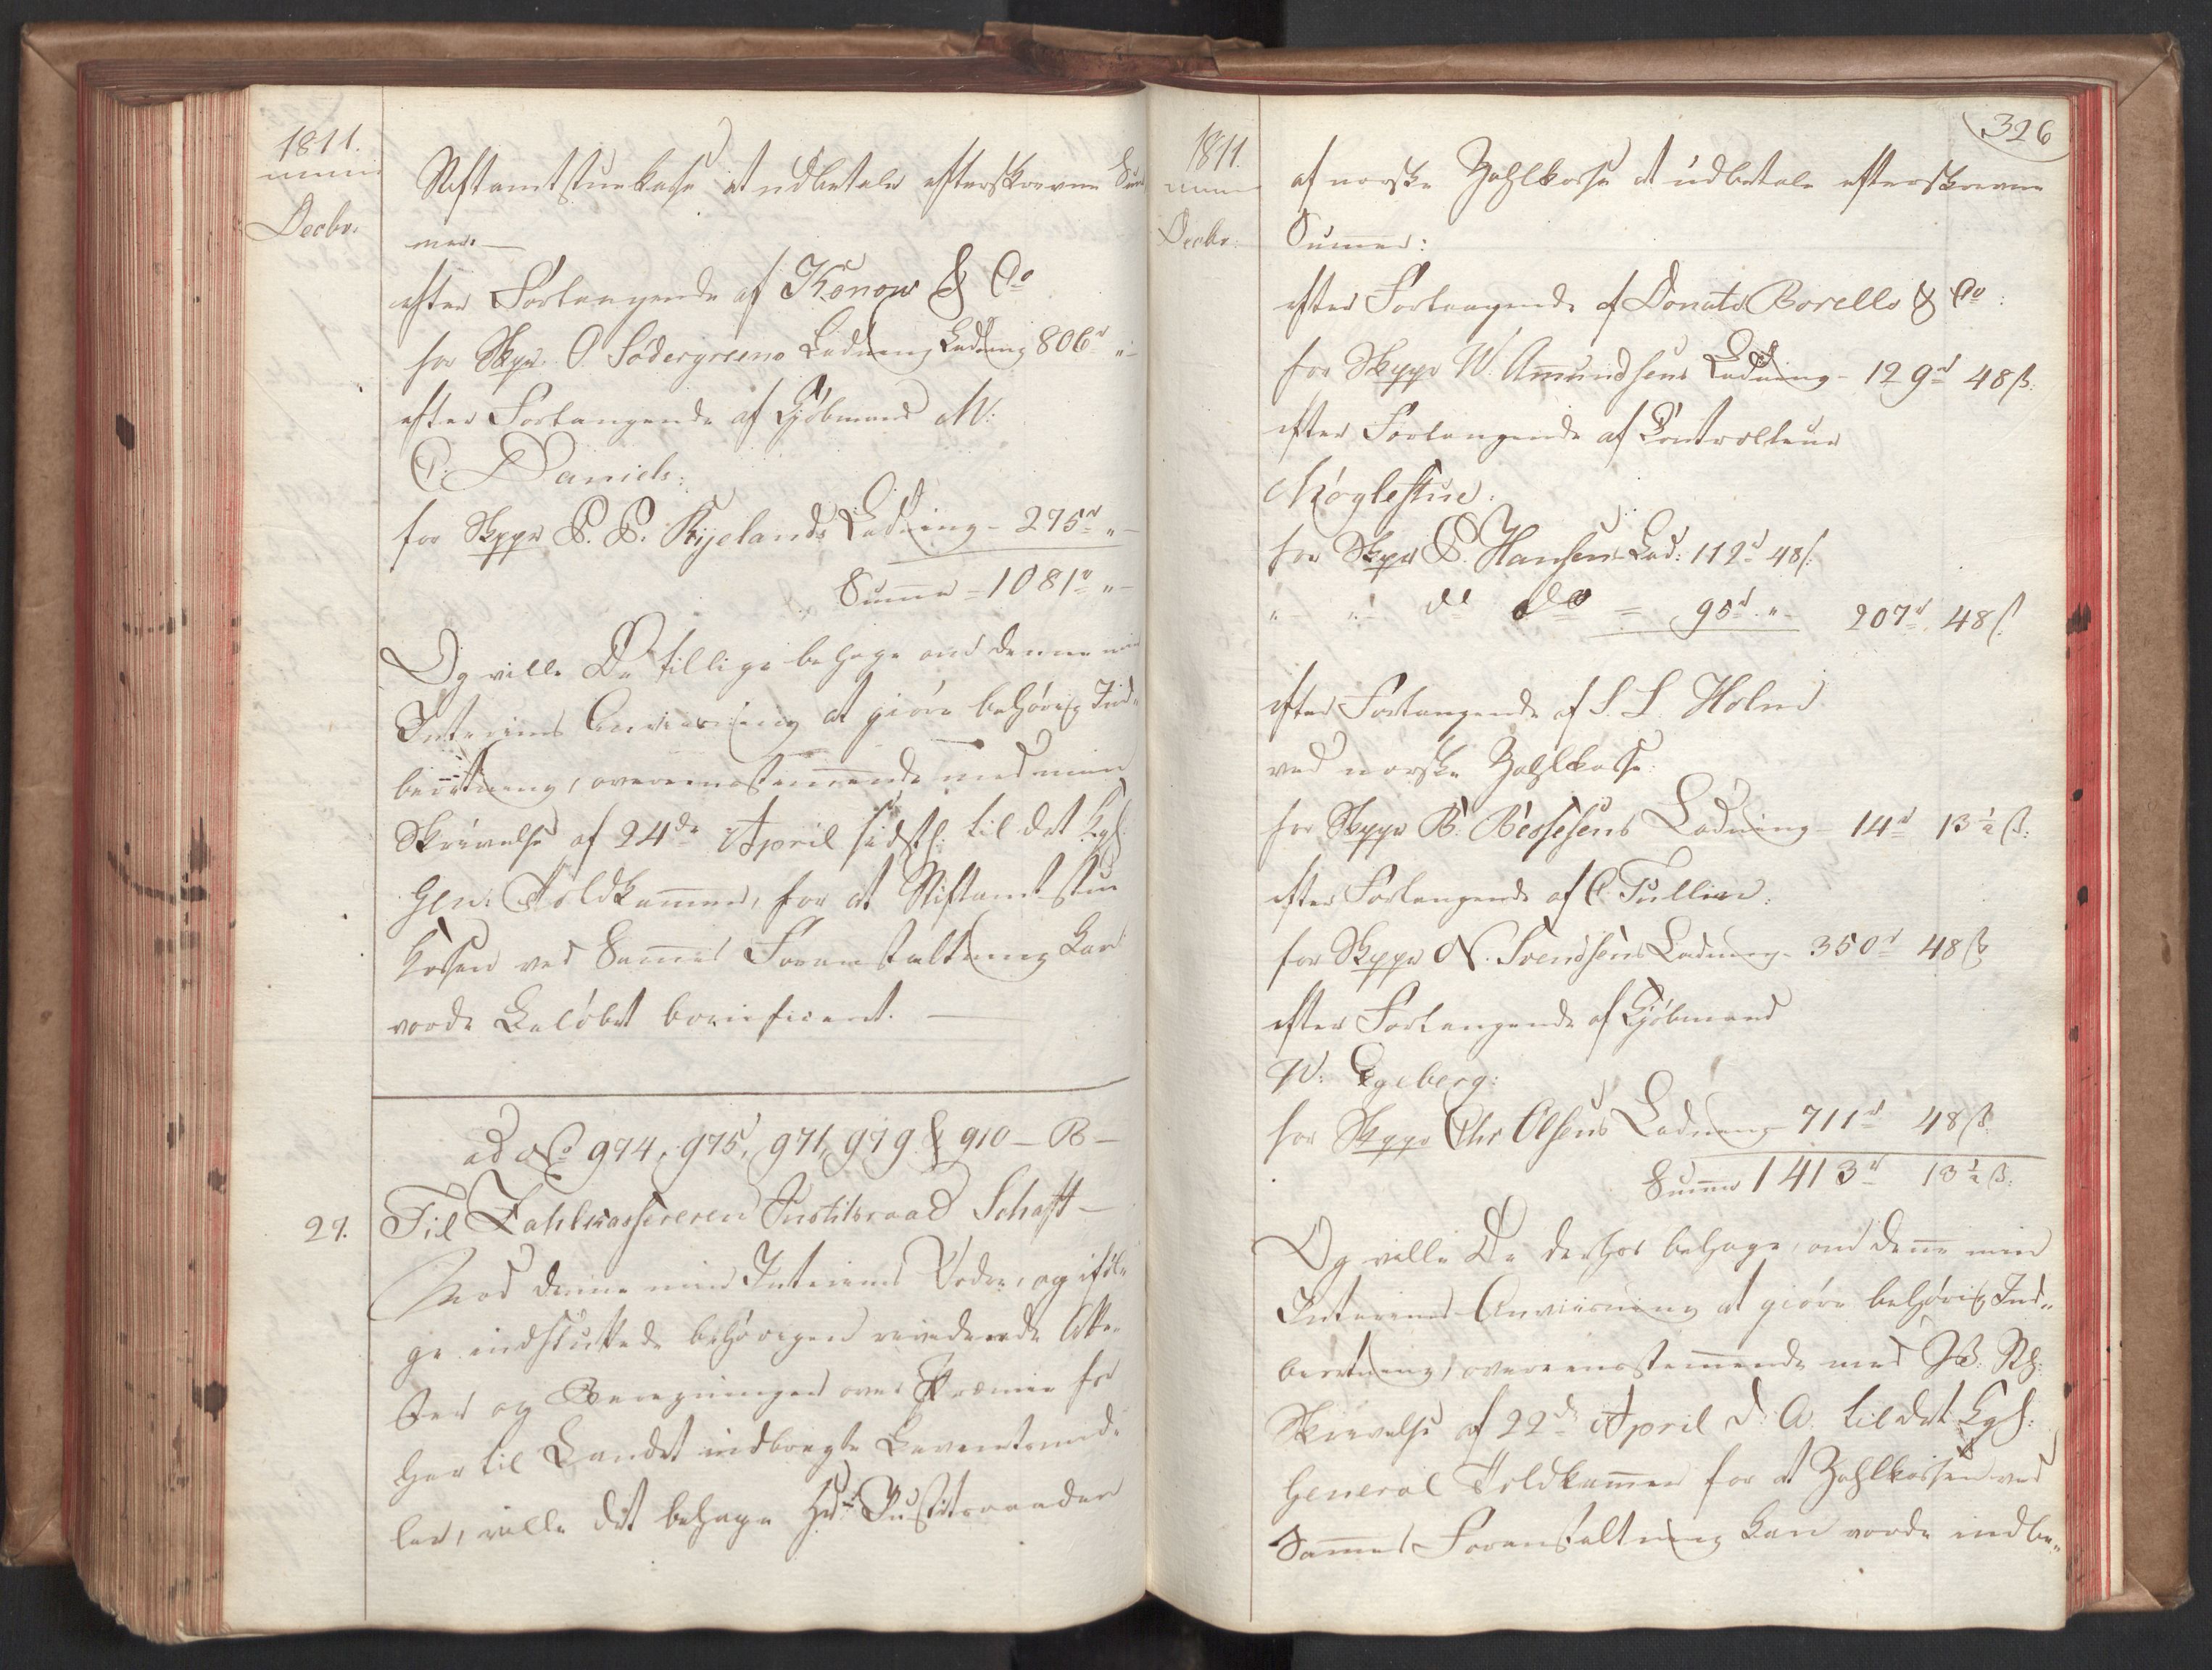 1811.
Decbr.
Stiftamtstuekasse at udbetale efterskrevne Sum
mer. —
efter Forlangende af Konow & Co
for Skpr. O Södergreens Ladning Ladning 806rd "-
efter Forlangende af Kjøbmand M:
C. Daniels:
for Skppr P. P. Kyelands Ladning - 275rd "-
Summa - 1081rd "-
Og ville De tillige behage om denne min
Interims Anviisning at giøre behørig Ind-
beretning, overeensstemmende med min
Skrivelse af 24de April sidstl: til det Kgl.
Genl. Toldkammer, for at Stiftamtstue
kassen ved Sammes Foranstaltning kan
vorde Beløbet bonificeret. —
ad No 974, 975, 971, 979 & 910 - B -
29. Til Zahlkassereren Justitsraad Schaft -
Mod denne min Interims Ordre, og iføl-
ge indsluttede behørigen reviderede Atte-
ster og Beregninger over Præmie for
her til Landet indbragte Levnetsmid-
ler, ville det behage Hr Justitsraaden
326
1811.
Decbr.
af norske Zahlkasse at udbetale efterskrevne
Summer:
efter Forlangende af Donato Borello & Co:
for Skppr W. Amundsens Ladning - 129rd 48ß.
efter Forlangende af Controlleur
Møglestue:
for Skpr P. Hansens Lad: 112rd 48ß.
"- "- do do = 95rd "- 207rd 48ß
efter Forlangende af S. L. Holm
ved norske Zahlkasse:
for Skppr B. Bessesens Ladning - 14rd 13½ ß.
efter Forlangende af C. Tullien:
for Skppr N. Svendsens Ladning - 350rd 48ß
efter Forlangende af Kjøbmand
W: Egeberg:
for Skppr Chr Olsens Ladning 711rd 48ß
Summa 1413rd 13½ ß.
Og ville De derhos behage, om denne min
Interims Anviisning at giøre behørig Ind-
beretning, overeensstemmende med
Skrivelse af 22de April d. A. til det Kgl:
General Toldkammer for at Zahlkassen ved
Sammes Foranstaltning kan vorde indbe-